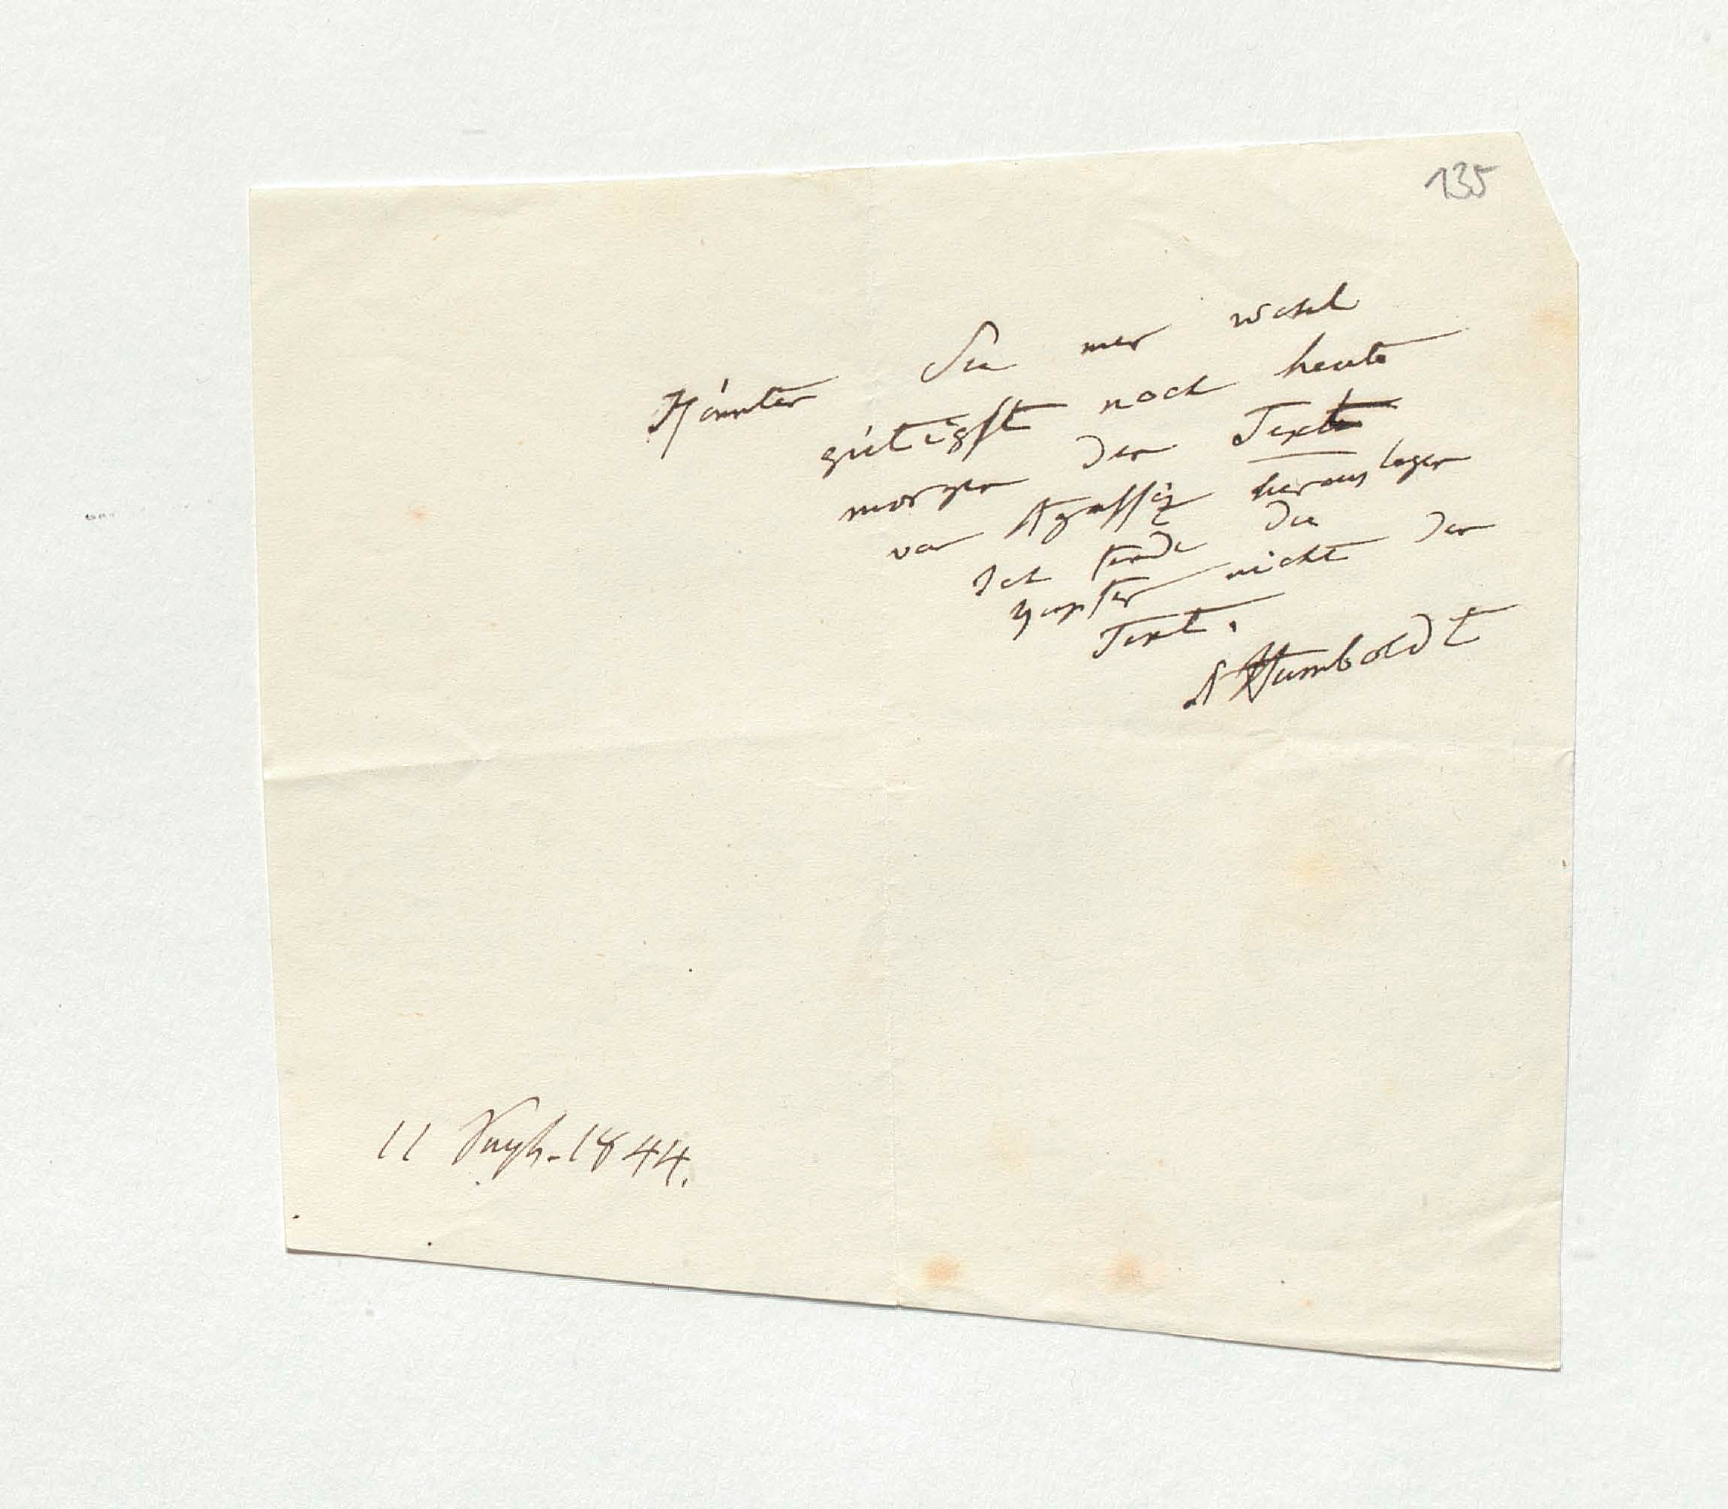 135
Könnten Sie mir wohl
gütigst noch heute
morgen den Text
von Agassiz herauslegen
Ich finde die
Kupfer nicht den
Text.
A Humboldt
11 1844.